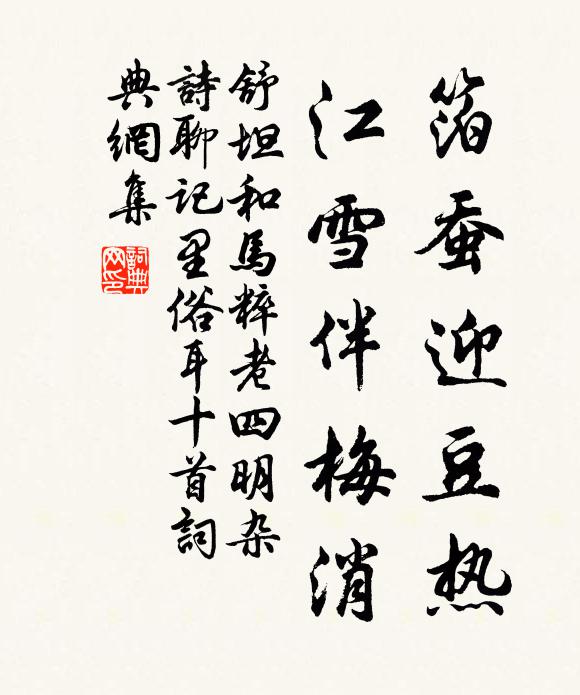 箔蚕迎豆热
江雪伴梅消
舒坦和馬粹老四明杂
詩聊記里俗耳十首詞
典網集
詞典
网印